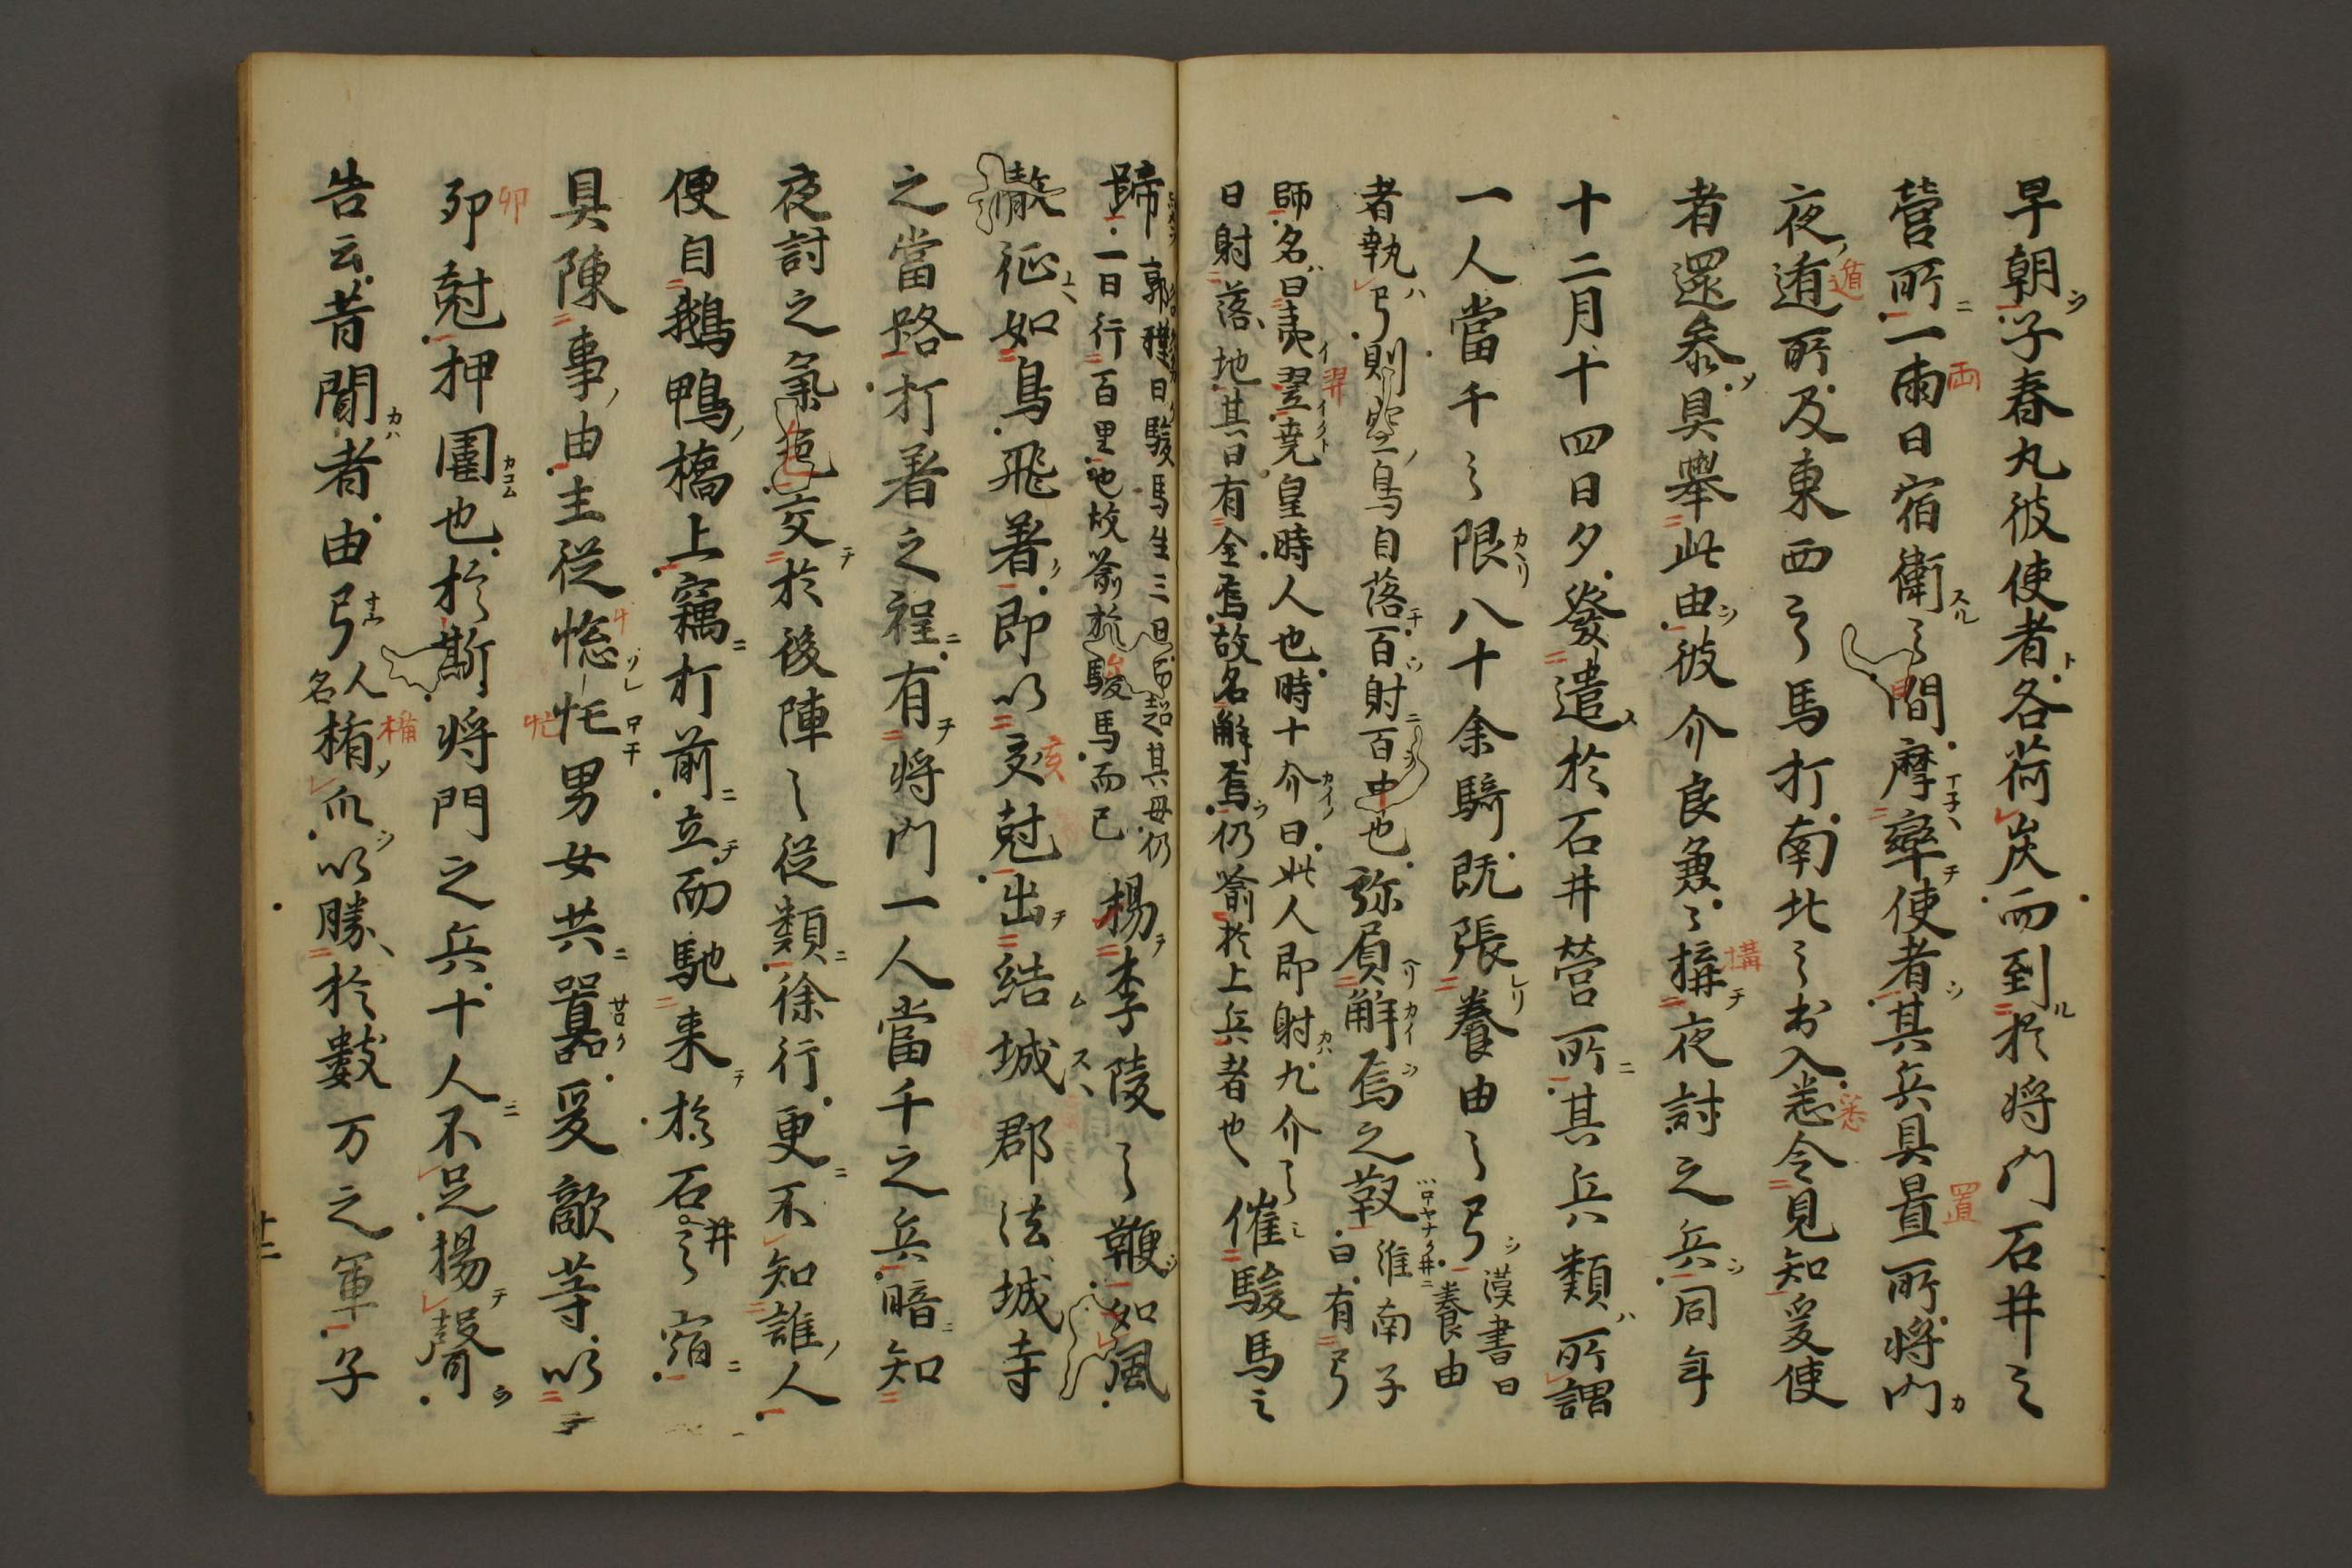 早朝子春丸彼使者各荷炭而到於将門石井之
営所一兩日宿衛之間摩率使者其兵具置所将門
夜遁所及東西之馬打南北之出入悉令見知爰使
者還参具舉此由彼介良兼々構夜討之兵同年
十二月十四日夕發遣於石井営所其兵類所謂
一人當千之限八十余騎既張養由之弓 漢書曰養由
者執弓則空鳥自落百射百中也 弥負解烏之靫 淮南子曰有弓
師名曰夷羿尭皇時人也時十介日此人即射九介之
日射落地其日有金烏故名解烏仍喩於上兵者也 催駿馬之
蹄 郭璞曰駿馬生三日而超其母仍
一日行百里也故喩於駿馬而已 揚李陵之鞭如風
徹征如鳥飛着即以亥剋出結城郡法城寺
之當路打着之程有将門一人當千之兵暗知
夜討之氣色交於後陣之従類徐行更不知誰人
便自鵝鴨橋上竊打前立而馳来於石井之宿
具陳事由主従忩忙男女共囂爰敵等以
卯剋押圍也於斯将門之兵十人不足揚聲
告云昔聞者由弓人名楯爪以勝於數万之軍子
卯
両
遁
悉
置
構
羿
亥
忙
楯
十二